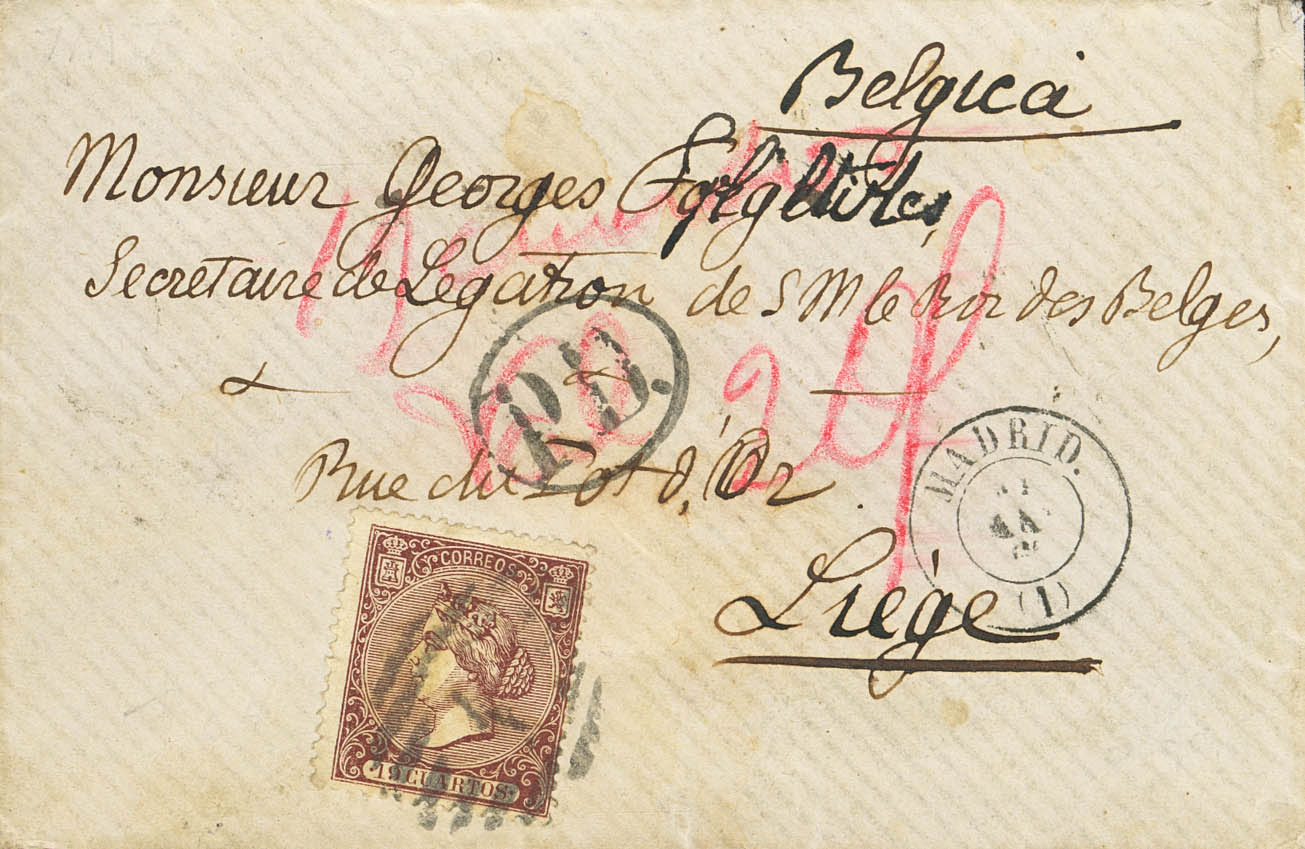 Belgica
Monsieur Georges
Secretaire de Legation de S M le Roi des Belges,
Rue du Pot d'Or
Liége
P.D.
MADRID.
(1)
CORREOS
19 CUARTOS